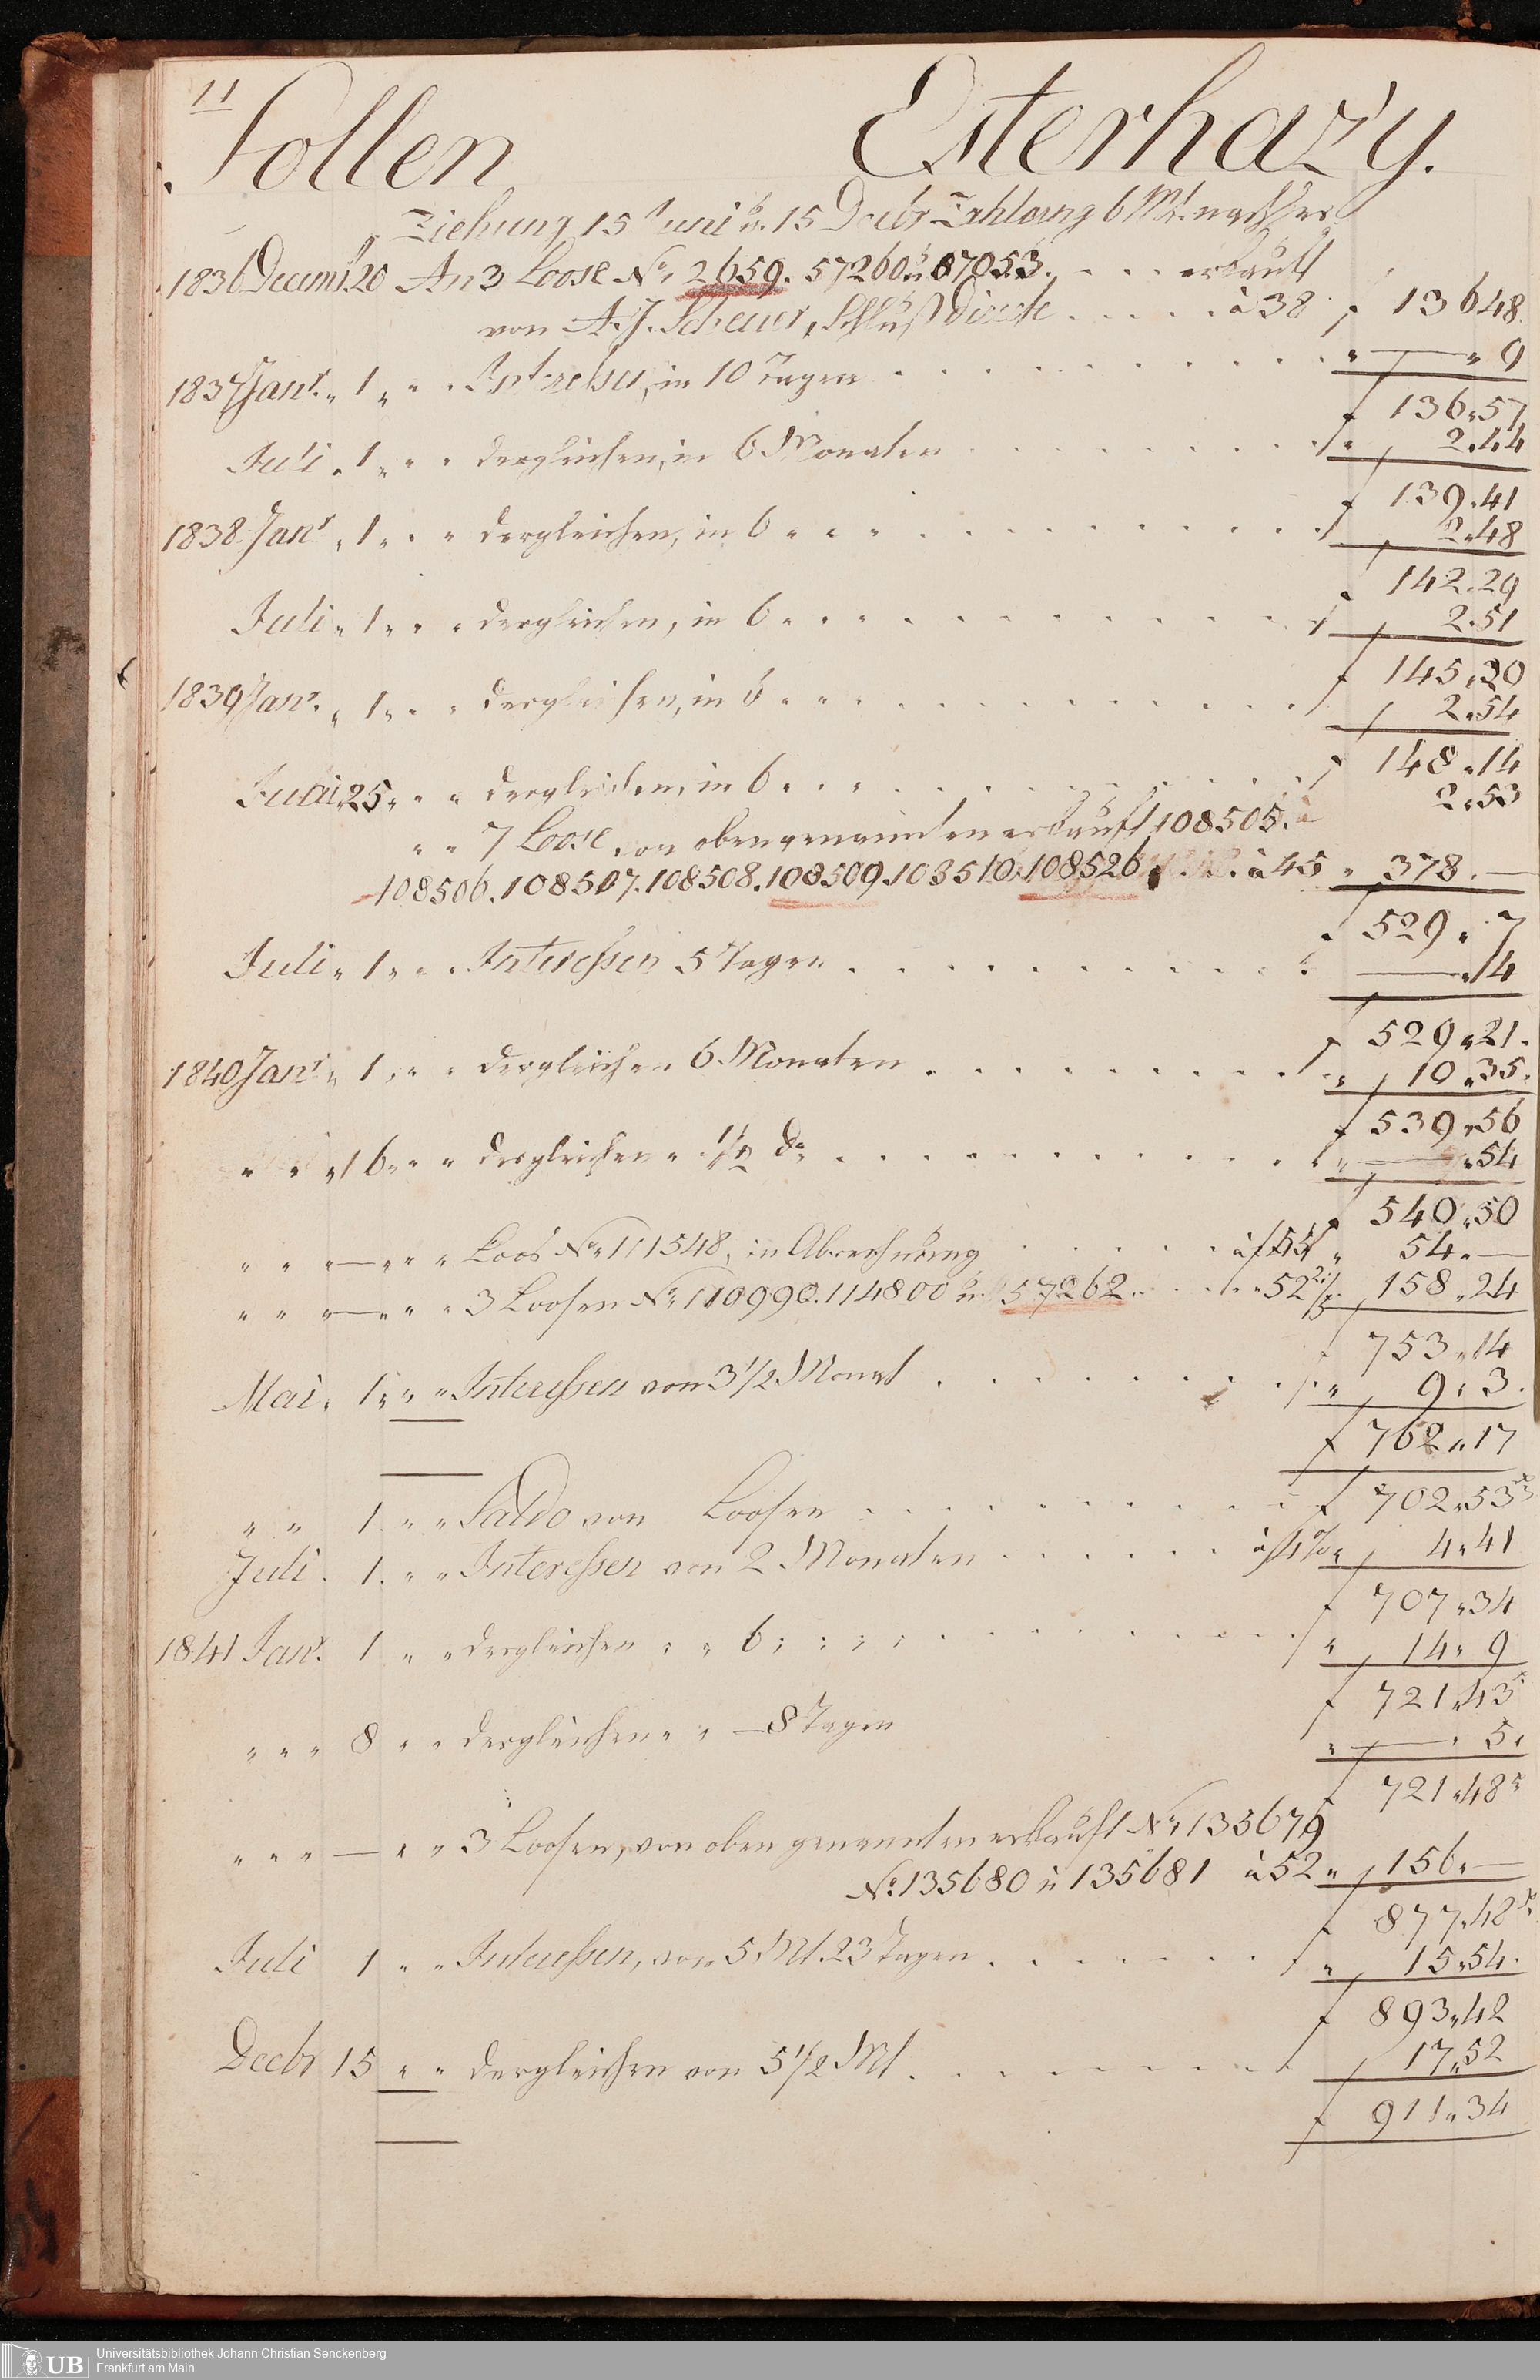 11
Sollen Esterhazy.
Ziehung 15 Juni u. 15 Decbr Zahlung 6 Mt. nachher
1836 Decemb. 20 An 3 Loose No. 2659. 57260 u 67053. . . . erkauft
von A. J. Scheuer, Schluß Diecte . . . . . à 38 f 136 48.
1837 Janr. " 1 " " Intressen, in 10 Tagen . . . . . . . . . " — " 9
f 136 " 57
Juli " 1 " " " dergleichen, in 6 Monaten . . . . . . . . " 2 " 44
f 139 " 41
1838 Janr " 1 " " " dergleichen, in 6 " " " . . . . . . . . 2 " 48
f 142 " 29
Juli " 1 " " " dergleichen, in 6 " " " . . . . . . . . 2 " 51
f 145 " 20
1839 Janr. " 1 " " " dergleichen, in 6 " " " . . . . . . . . 2 " 54
f 148 " 14
Juni 25 " " " dergleichen, in 6 " " " . . . . . . . . 2 " 53
" " 7 Loose, von obengenannten erkauft 108505.
108506. 108507. 108508. 108509. 108510. 108526 . . . à 45 " 378. —
f 529 " 7
Juli " 1 " " " Interessen 5 Tagen . . . . . . . . . " — " 14
f 529 " 21.
1840 Janr " 1 " " " dergleichen 6 Monaten . . . . . . . . " 10 " 35.
f 539 " 56
" " " 16 " " " dergleichen " 1/2 do . . . . . . . . . " — " 54
f 540 " 50
" " " — " " " Loos No. 111548, in Abrechnung . . . . . à f 54 " 54 " —
" " " — " " " 3 Loosen No. 110990. 114800 u. 57262 . . . . " 52 " 158 " 24
f 753 " 14
Mai " 1 " " " Interessen von 3 1/2 Monat . . . . . . . . " 9 " 3.
f 762 " 17
" " 1. " " Saldo von Loosen . . . . . . . . . f 702 " 53
Juli. 1. " " Interessen von 2 Monaten . . . . . . à 4% " 4 " 41
f 707 " 34
1841 Janr. 1 " " dergleichen " " 6 " " " " . . . . . . . " 14 " 9
f 721 " 43
" " " 8 " " dergleichen " " — 8 Tagen " — " 5.
f 721 " 48
" " " — " " 3 Loosen, von oben genannten erkauft No. 135679
No. 135680 u 135681 à 52 " 156 " —
f 877 " 48
Juli 1 " " Interessen, von 5 Mt. 23 Tagen . . . . . . . " 15 " 54.
f 893 " 42
Decbr 15 " " dergleichen von 5 1/2 Mt . . . . . . . . 17 " 52
f 911 " 34
UB Universitätsbibliothek Johann Christian Senckenberg
Frankfurt am Main